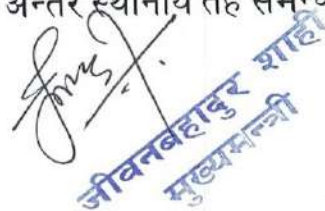 अन्तर स्थानीय तह समन्व
जीवनबहादुर शाही
मुख्यमन्त्री